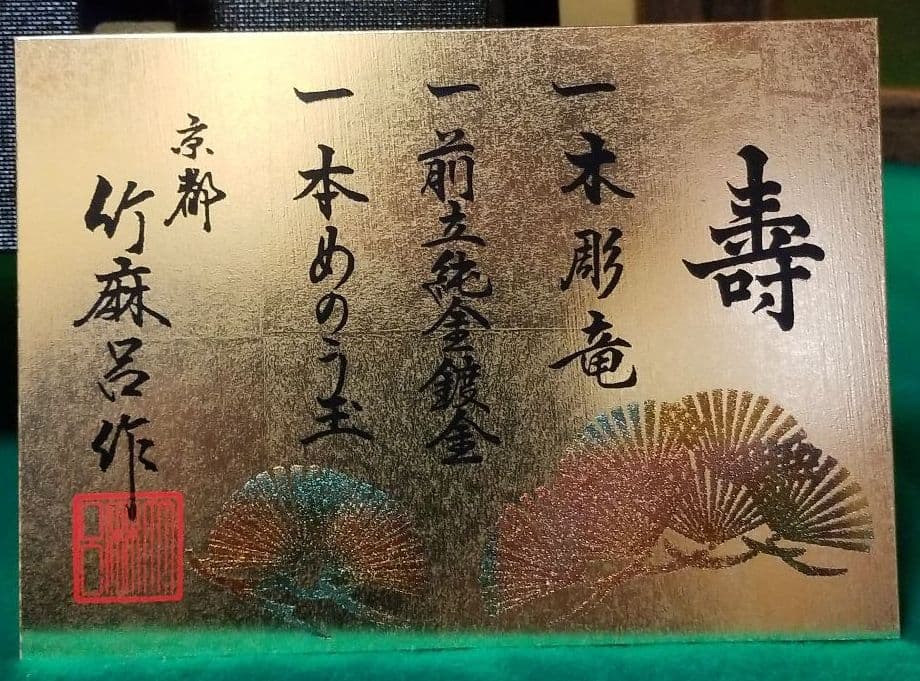 壽
一 木彫竜
一 前立純金鍍金
一 本めのう玉
京都
竹麻呂作